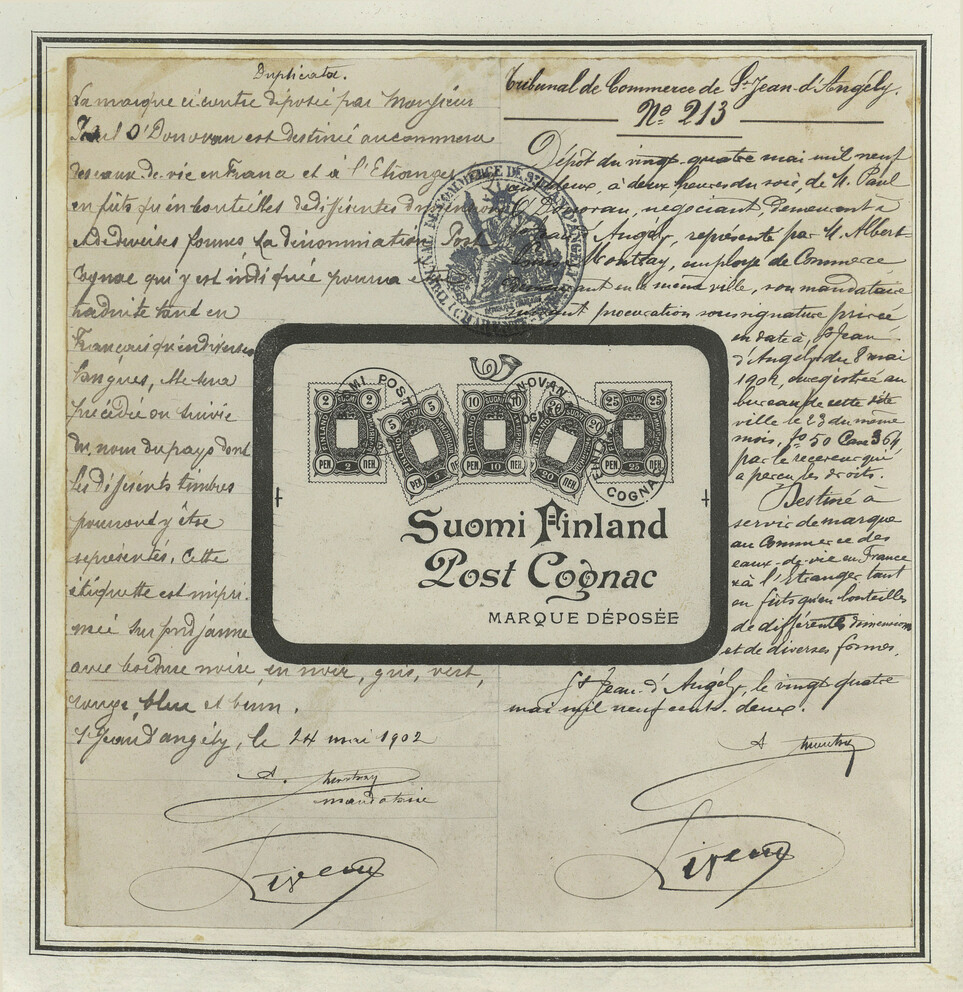 Duplicata.
La marque ci contre déposée par Monsieur
Paul O'Donovan est destinée au commerce
des eaux-de-vie en France et à l'Etranger
en fûts qu'en bouteilles de différentes dimensions
et de diverses formes. La dénomination Post
Cognac qui y est indiquée pourra être
traduite tant en
Français qu'en diverses
langues, et sera
précédée ou suivie
du nom du pays dont
les différents timbres
pourront y être
représentés. Cette
étiquette est impri-
mée sur fond jaune
avec bordure noire, en noir, gris, vert,
rouge, bleu et brun.
St Jean d'angély, le 24 mai 1902
mandataire
Tribunal de Commerce de St Jean-d'Angély.
No 213
Dépôt du vingt-quatre mai mil neuf
cent deux, à deux heures du soir, de M. Paul
O'Donovan, négociant, demeurant à
St Jean d'Angély, représenté par M. Albert
Montray, employé de Commerce
demeurant en la même ville, son mandataire
suivant procuration sous signature privée
en date à, St Jean
d'Angély du 8 mai
1902, enregistrée au
bureau de cette dite
ville le 23 du même
mois, fo 50 Case 364
par le receveur qui
a perçu les droits.
Destiné à
servir de marque
au Commerce des
eaux-de-vie en France
et à l'Etranger tant
en fûts qu'en bouteilles
de différentes dimensions
et de diverses formes.
St Jean-d'Angély, le vingt quatre
mai mil neuf cent deux.
SUOMI POST
O'DONOVAN
COGNAC
FINLAND
COGNAC
2 SUOMI 2
FINLAND
PEN 2 ПЕН.
5 5
PEN 5
10 SUOMI 10
FINLAND
PEN 10 ПЕН.
20
20 ПЕН.
25 SUOMI 25
PEN 25 ПЕН.
Suomi Finland
Post Cognac
MARQUE DÉPOSÉE